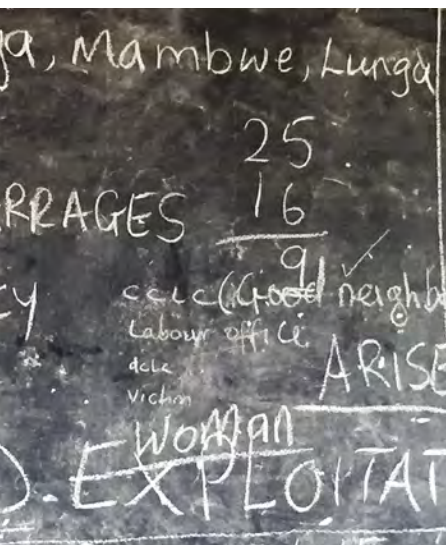 ga, Mambwe, Lunga
25
RRAGES 16
9
CY cclc (Good neighb
Labour office
ARISE
Victim
Woman
D. EXPLOITAT